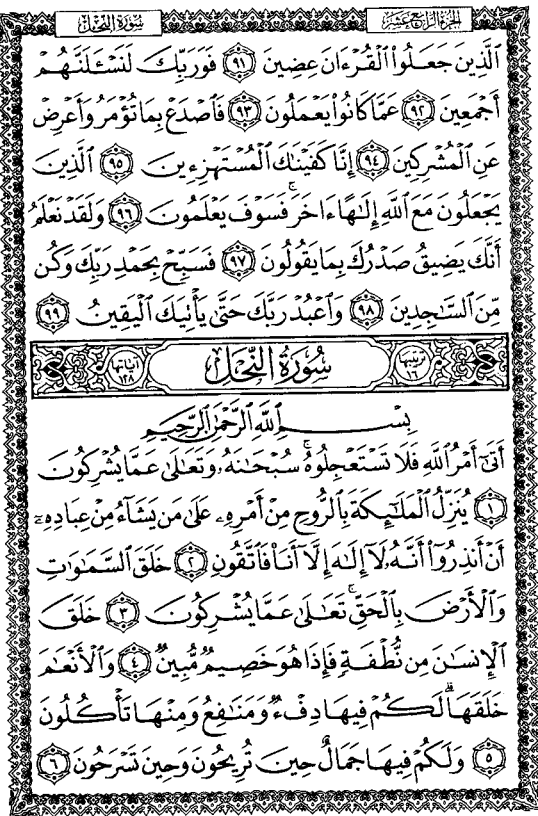 سُورَةُ النَّحْلِ الجزء الرابع عشر
الَّذِينَ جَعَلُوا۟ الْقُرْءَانَ عِضِينَ ٩١ فَوَرَبِّكَ لَنَسْـَٔلَنَّهُمْ
أَجْمَعِينَ ٩٢ عَمَّا كَانُوا۟ يَعْمَلُونَ ٩٣ فَاصْدَعْ بِمَا تُؤْمَرُ وَأَعْرِضْ
عَنِ الْمُشْرِكِينَ ٩٤ إِنَّا كَفَيْنَٰكَ الْمُسْتَهْزِءِينَ ٩٥ الَّذِينَ
يَجْعَلُونَ مَعَ اللَّهِ إِلَٰهًا ءَاخَرَ ۚ فَسَوْفَ يَعْلَمُونَ ٩٦ وَلَقَدْ نَعْلَمُ
أَنَّكَ يَضِيقُ صَدْرُكَ بِمَا يَقُولُونَ ٩٧ فَسَبِّحْ بِحَمْدِ رَبِّكَ وَكُن
مِّنَ السَّٰجِدِينَ ٩٨ وَاعْبُدْ رَبَّكَ حَتَّىٰ يَأْتِيَكَ الْيَقِينُ ٩٩
ترتيبها ١٦ سُورَةُ النَّحْلِ آياتها ١٢٨
بِسْمِ اللَّهِ الرَّحْمَٰنِ الرَّحِيمِ
أَتَىٰٓ أَمْرُ اللَّهِ فَلَا تَسْتَعْجِلُوهُ ۚ سُبْحَٰنَهُۥ وَتَعَٰلَىٰ عَمَّا يُشْرِكُونَ
١ يُنَزِّلُ الْمَلَٰٓئِكَةَ بِالرُّوحِ مِنْ أَمْرِهِۦ عَلَىٰ مَن يَشَآءُ مِنْ عِبَادِهِۦٓ
أَنْ أَنذِرُوٓا۟ أَنَّهُۥ لَآ إِلَٰهَ إِلَّآ أَنَا۠ فَاتَّقُونِ ٢ خَلَقَ السَّمَٰوَٰتِ
وَالْأَرْضَ بِالْحَقِّ ۚ تَعَٰلَىٰ عَمَّا يُشْرِكُونَ ٣ خَلَقَ
الْإِنسَٰنَ مِن نُّطْفَةٍ فَإِذَا هُوَ خَصِيمٌ مُّبِينٌ ٤ وَالْأَنْعَٰمَ
خَلَقَهَا ۗ لَكُمْ فِيهَا دِفْءٌ وَمَنَٰفِعُ وَمِنْهَا تَأْكُلُونَ
٥ وَلَكُمْ فِيهَا جَمَالٌ حِينَ تُرِيحُونَ وَحِينَ تَسْرَحُونَ ٦